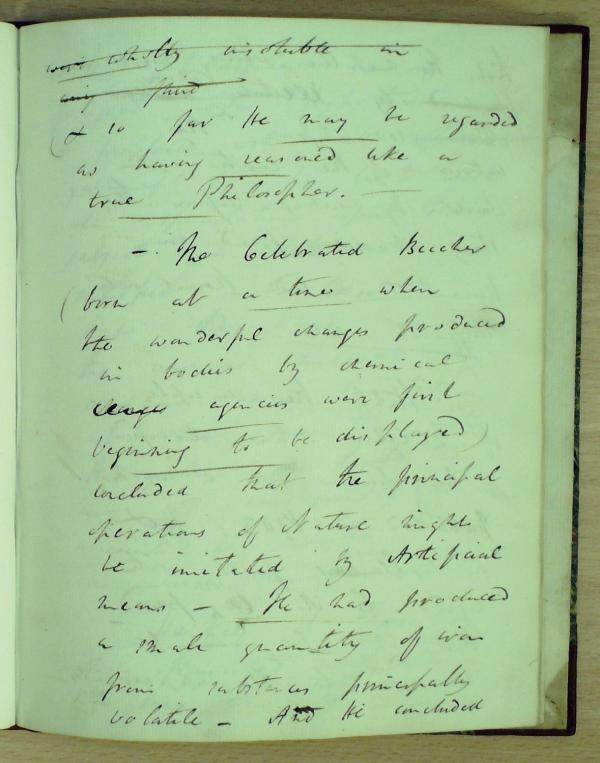 were wholly insoluble in
any fluid
& so far He may be regarded
as having reasoned like a
true Philosopher. —
— The Celebrated Beccher
(born at a time when
the wonderful changes produced
in bodies by chemical
agencies were first
beginning to be displayed)
concluded that the principal
operations of Nature might
be imitated by Artificial
means — He had produced
a small quantity of iron
from substances principally
volatile — And He concluded